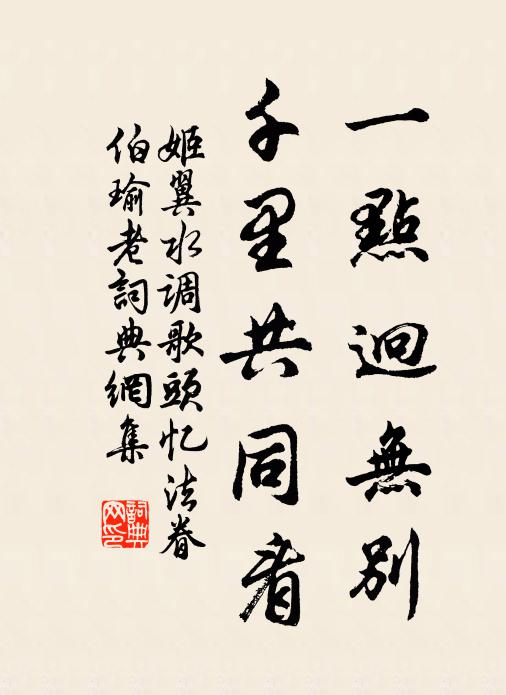 一點迥無别
千里共同看
姬翼水调歌頭忆法眷
伯瑜老詞典網集
詞典网印